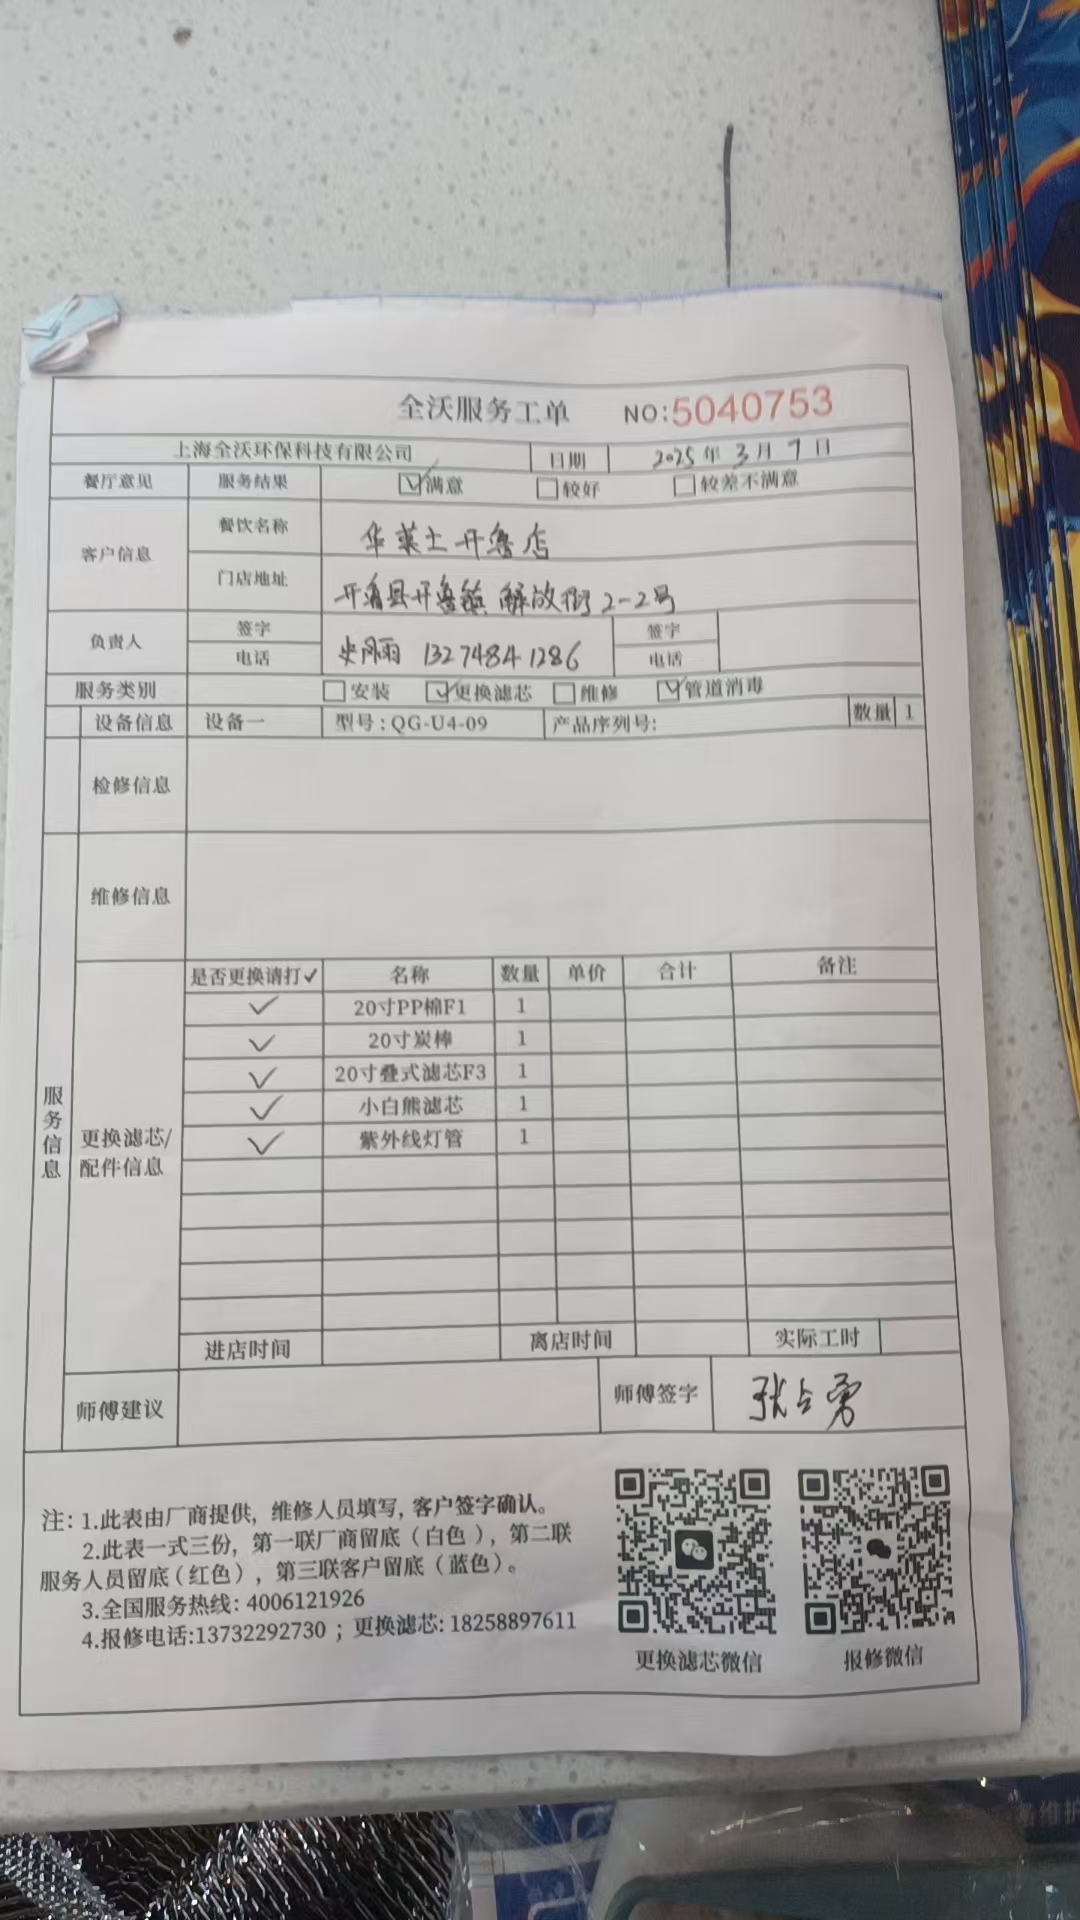 全沃服务工单 NO:5040753
上海全沃环保科技有限公司 日期 2025年3月7日
餐厅意见 服务结果 满意 较好 较差不满意
客户信息 餐饮名称 华莱士开鲁店
门店地址 开鲁县开鲁镇解放街2-2号
负责人 签字 电话 史风雨 13274841286 签字 电话
服务类别 安装 更换滤芯 维修 管道消毒
设备信息 设备一 型号:QG-U4-09 产品序列号: 数量 1
检修信息
维修信息
服务信息
更换滤芯/配件信息
是否更换请打✓ 名称 数量 单价 合计 备注
✓ 20寸PP棉F1 1
✓ 20寸炭棒 1
✓ 20寸叠式滤芯F3 1
✓ 小白熊滤芯 1
✓ 紫外线灯管 1
进店时间 离店时间 实际工时
师傅建议 师傅签字 张占勇
注:1.此表由厂商提供,维修人员填写,客户签字确认。
2.此表一式三份,第一联厂商留底(白色),第二联
服务人员留底(红色),第三联客户留底(蓝色)。
3.全国服务热线:4006121926
4.报修电话:13732292730;更换滤芯:18258897611
更换滤芯微信 报修微信